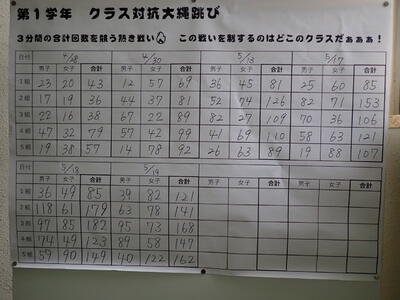 第1学年 クラス対抗大縄跳び
3分間の合計回数を競う熱き戦い この戦いを制するのはどこのクラスだぁぁぁ！
日付 4/28 4/30 5/13 5/17
男子 女子 合計 男子 女子 合計 男子 女子 合計 男子 女子 合計
1組 23 20 43 12 57 69 36 45 81 25 60 85
2組 17 19 36 44 37 81 52 74 126 82 71 153
3組 22 16 38 67 22 89 82 27 109 70 36 106
4組 47 32 79 57 42 99 41 69 110 58 63 121
5組 19 38 57 14 78 92 26 63 89 19 88 107
日付 5/18 5/19
男子 女子 合計 男子 女子 合計 男子 女子 合計 男子 女子 合計
1組 36 49 85 39 82 121
2組 118 61 179 63 78 141
3組 97 85 182 95 73 168
4組 74 49 123 89 58 147
5組 59 90 149 40 122 162